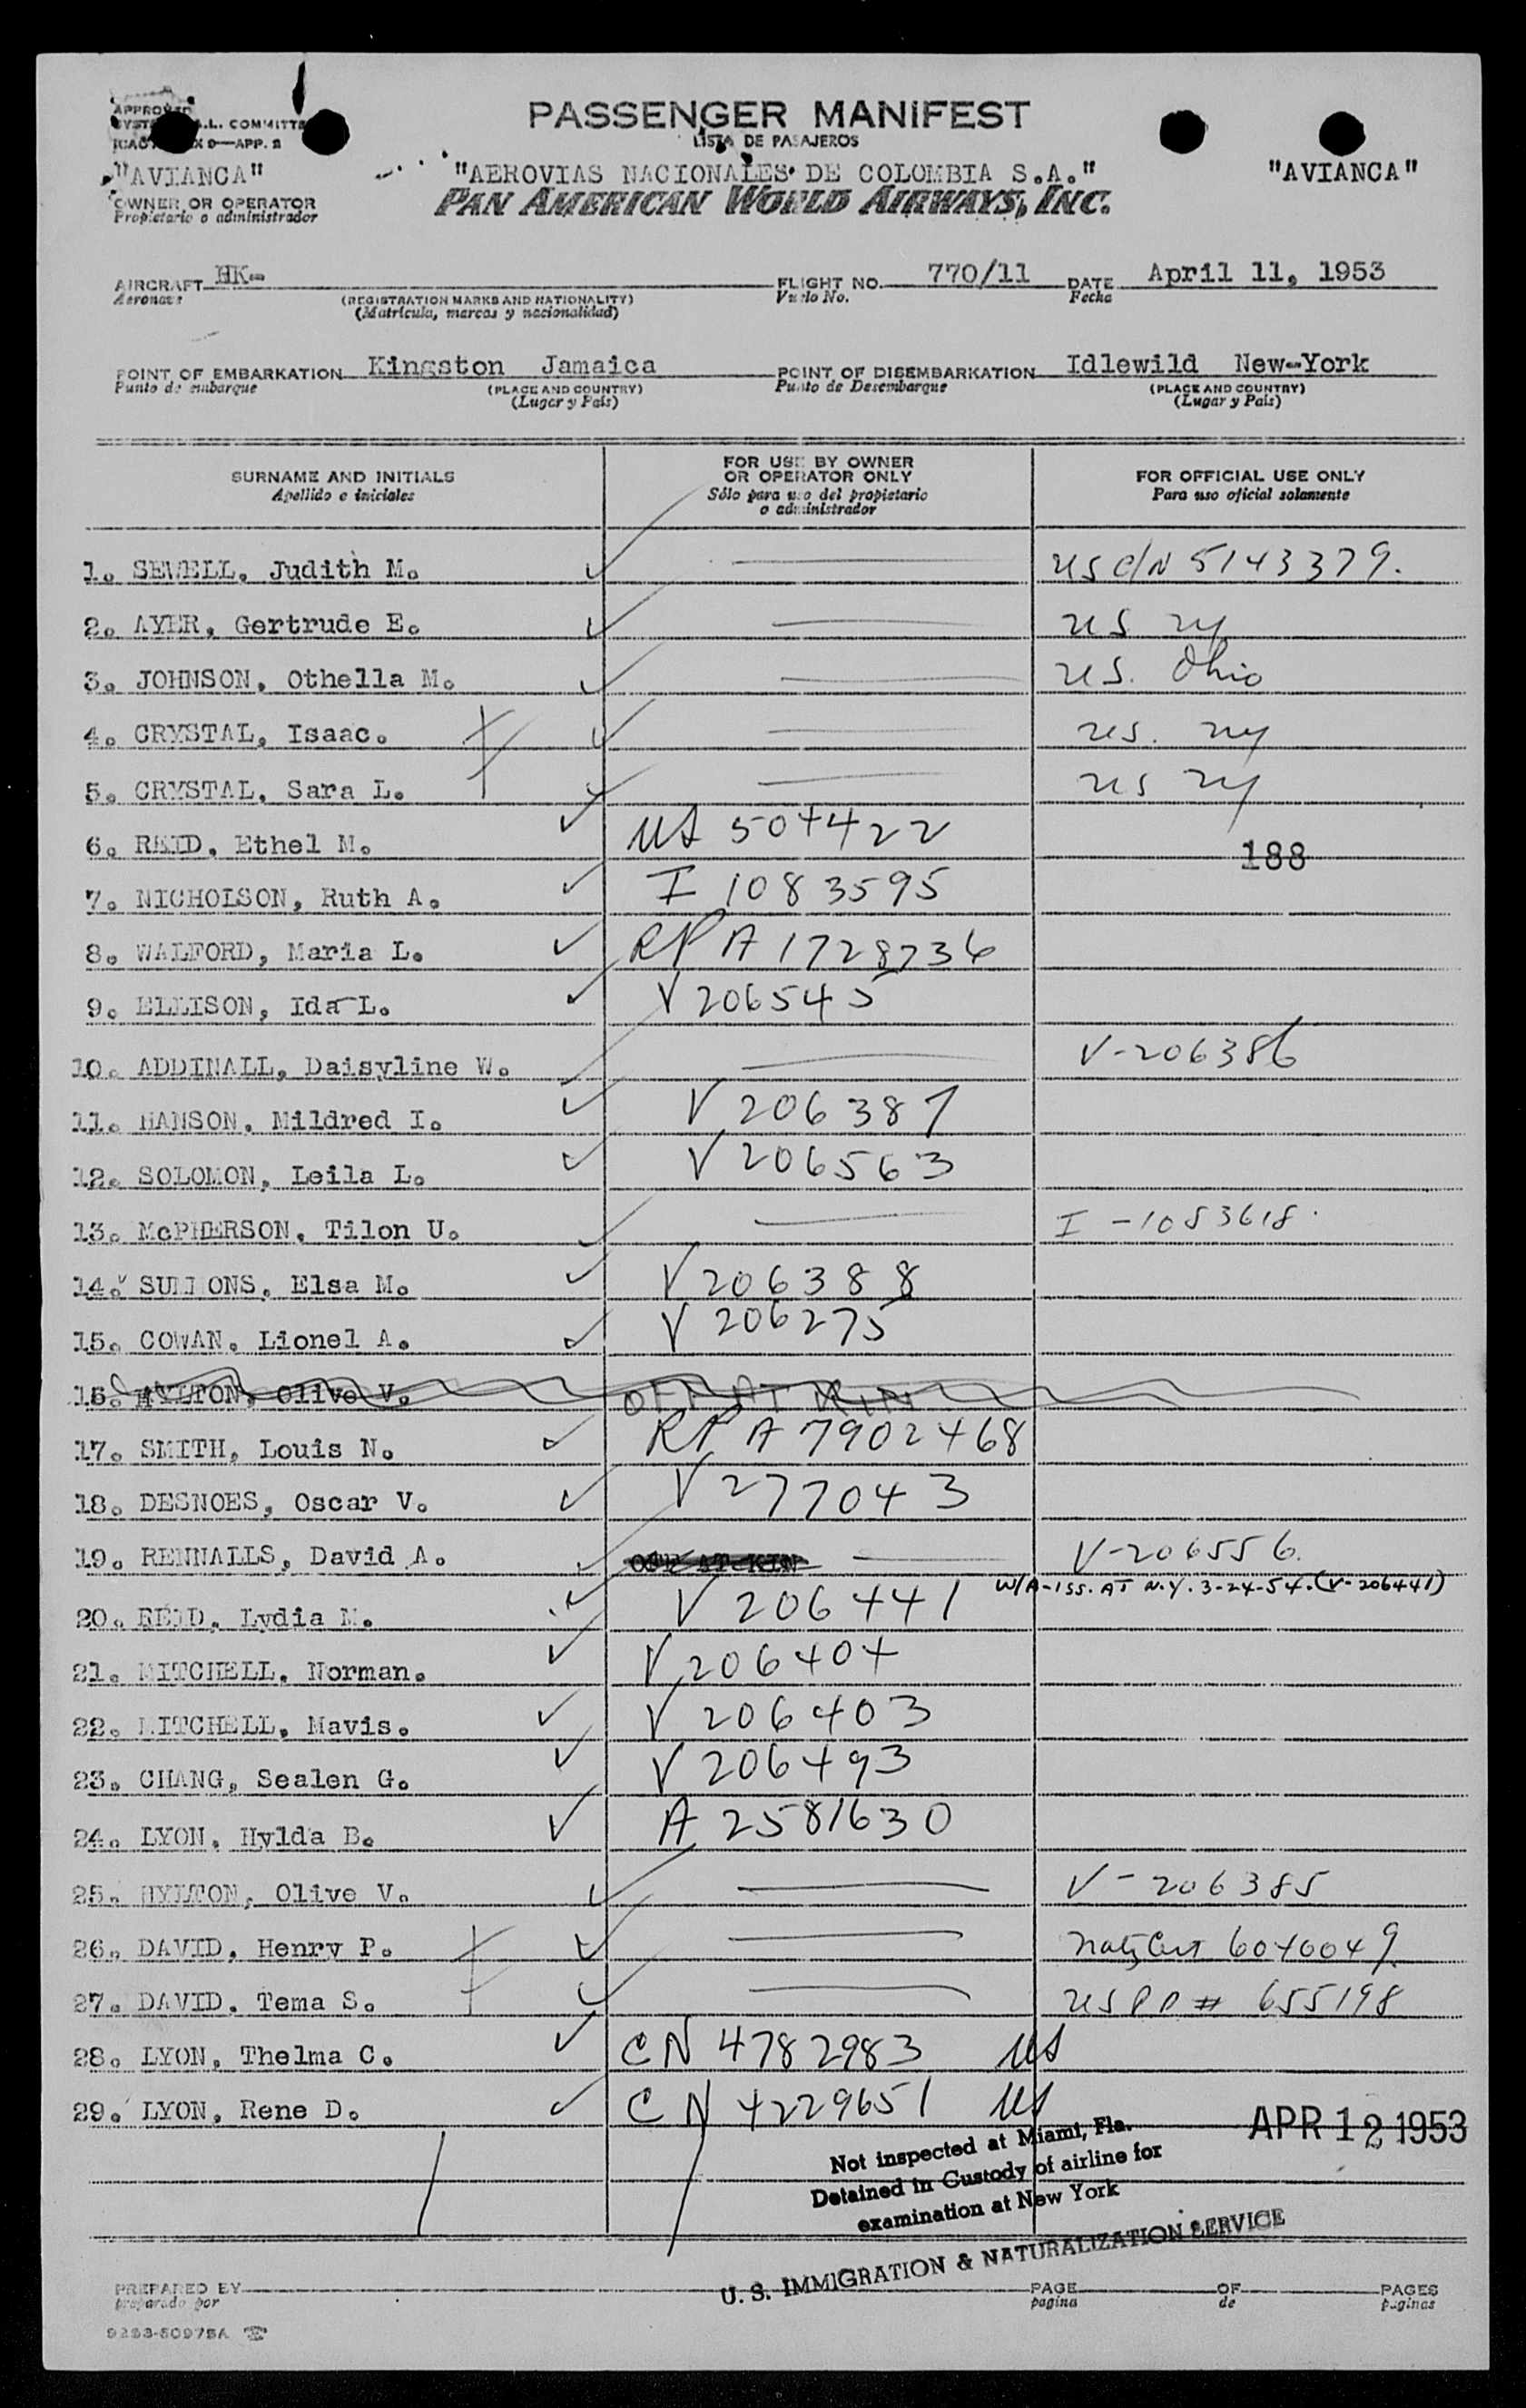 APPROVED
COMMITTE
APP. 2
PASSENGER MANIFEST
LISTA DE PASAJEROS
"AVIANCA"
"AEROVIAS NACIONALES DE COLOMBIA S.A."
"AVIANCA"
OWNER OR OPERATOR
Propietario o administrador
PAN AMERICAN WORLD AIRWAYS, INC.
AIRCRAFT HK-
Aeronave
(REGISTRATION MARKS AND NATIONALITY)
(Matrícula, marcas y nacionalidad)
FLIGHT NO. 770/11
Vuelo No.
DATE April 11, 1953
Fecha
POINT OF EMBARKATION Kingston Jamaica
Punto de embarque
(PLACE AND COUNTRY)
(Lugar y País)
POINT OF DISEMBARKATION Idlewild New-York
Punto de Desembarque
(PLACE AND COUNTRY)
(Lugar y País)
SURNAME AND INITIALS
Apellido e iniciales
FOR USE BY OWNER
OR OPERATOR ONLY
Sólo para uso del propietario
o administrador
FOR OFFICIAL USE ONLY
Para uso oficial solamente
1. SEWELL, Judith M. US C/N 5143379.
2. AYER, Gertrude E. US NY
3. JOHNSON, Othella M. US. Ohio
4. CRYSTAL, Isaac. US. NY
5. CRYSTAL, Sara L. US NY
6. REID, Ethel M. US 507422
188
7. NICHOLSON, Ruth A. I 1083595
8. WALFORD, Maria L. RP A 1728736
9. ELLISON, Ida L. V 206545
10. ADDINALL, Daisyline W. V-206386
11. HANSON, Mildred I. V 206387
12. SOLOMON, Leila L. V 206563
13. McPHERSON, Tilon U. I-1083618.
14. SUMMONS, Elsa M. V 206388
15. COWAN, Lionel A. V 206275
16. HYLTON, Olive V. OFF AT KIN
17. SMITH, Louis N. RP A 7902468
18. DESNOES, Oscar V. V 277043
19. RENNALLS, David A. OFF AT KIN V-206556.
W/A-ISS. AT N.Y. 3-24-54. (V-206441)
20. REID, Lydia M. V 206441
21. MITCHELL, Norman. V 206404
22. MITCHELL, Mavis. V 206403
23. CHANG, Sealen G. V 206493
24. LYON, Hylda B. A 2581630
25. HYLTON, Olive V. V-206385
26. DAVID, Henry P. Natz Cert 6040049
27. DAVID, Tema S. US PP # 655198
28. LYON, Thelma C. CN 4782983 US
29. LYON, Rene D. CN 4229651 US
APR 12 1953
Not inspected at Miami, Fla.
Detained in Custody of airline for
examination at New York
U. S. IMMIGRATION & NATURALIZATION SERVICE
PREPARED BY
preparado por
PAGE
pagina
OF
de
PAGES
paginas